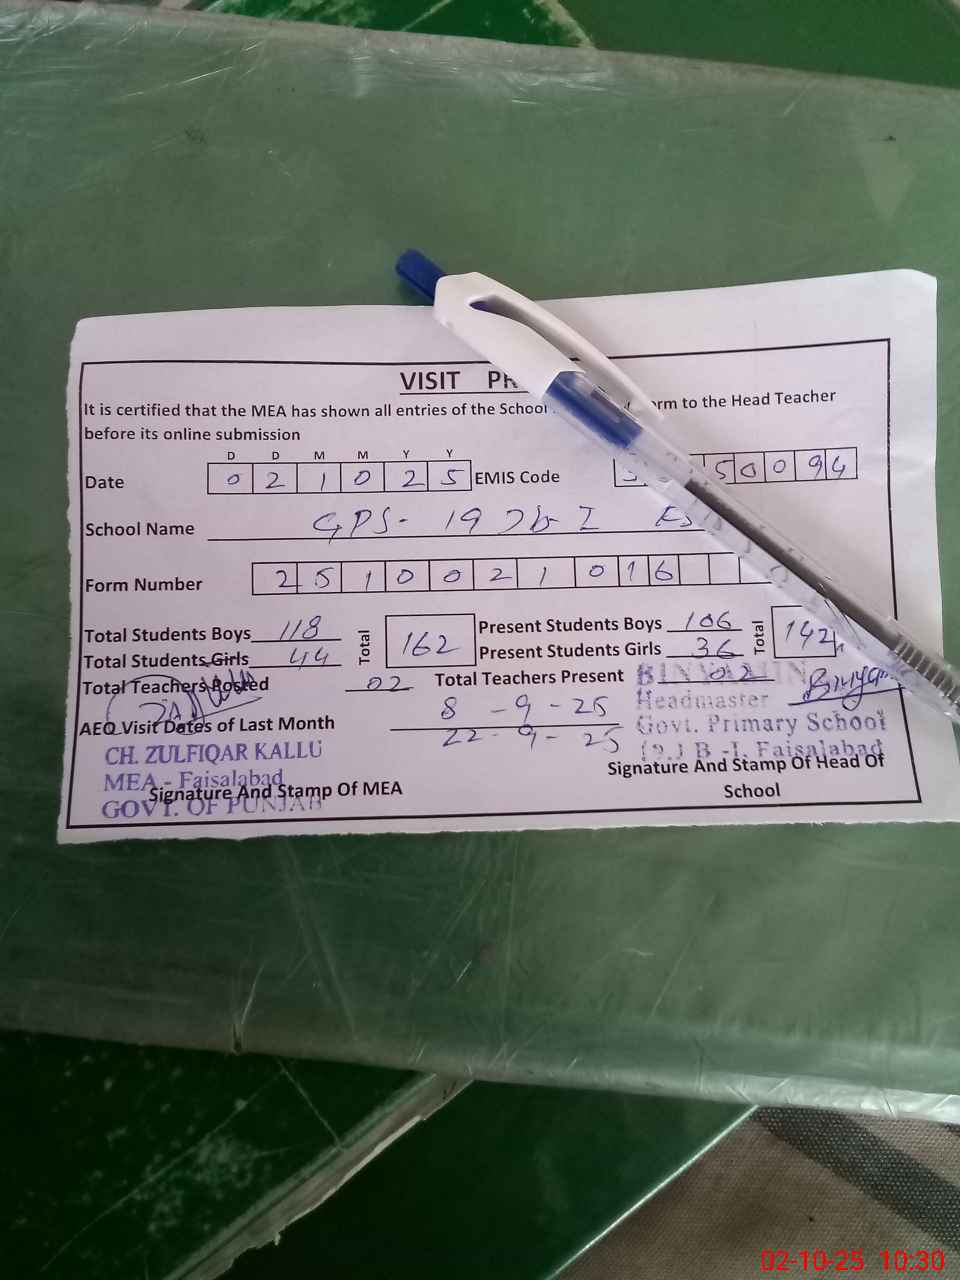 VISIT PR
It is certified that the MEA has shown all entries of the School orm to the Head Teacher
before its online submission
D D M M Y Y
Date 0 2 1 0 2 5 EMIS Code 5 0 0 9 4
School Name GPS- 19 I
Form Number 2 5 1 0 0 2 1 0 1 6
Total Students Boys 118 Total 162 Present Students Boys 106 Total 142
Total Students Girls 44 Present Students Girls 36
Total Teachers Posted 02 Total Teachers Present 02
AEO Visit Dates of Last Month 8 - 9 - 25
22 - 9 - 25
CH. ZULFIQAR KALLU
MEA - Faisalabad
GOVT. OF PUNJAB
Signature And Stamp Of MEA
BINYAMIN
Headmaster
Govt. Primary School
B -I, Faisalabad
Signature And Stamp Of Head Of
School
02-10-25 10:30